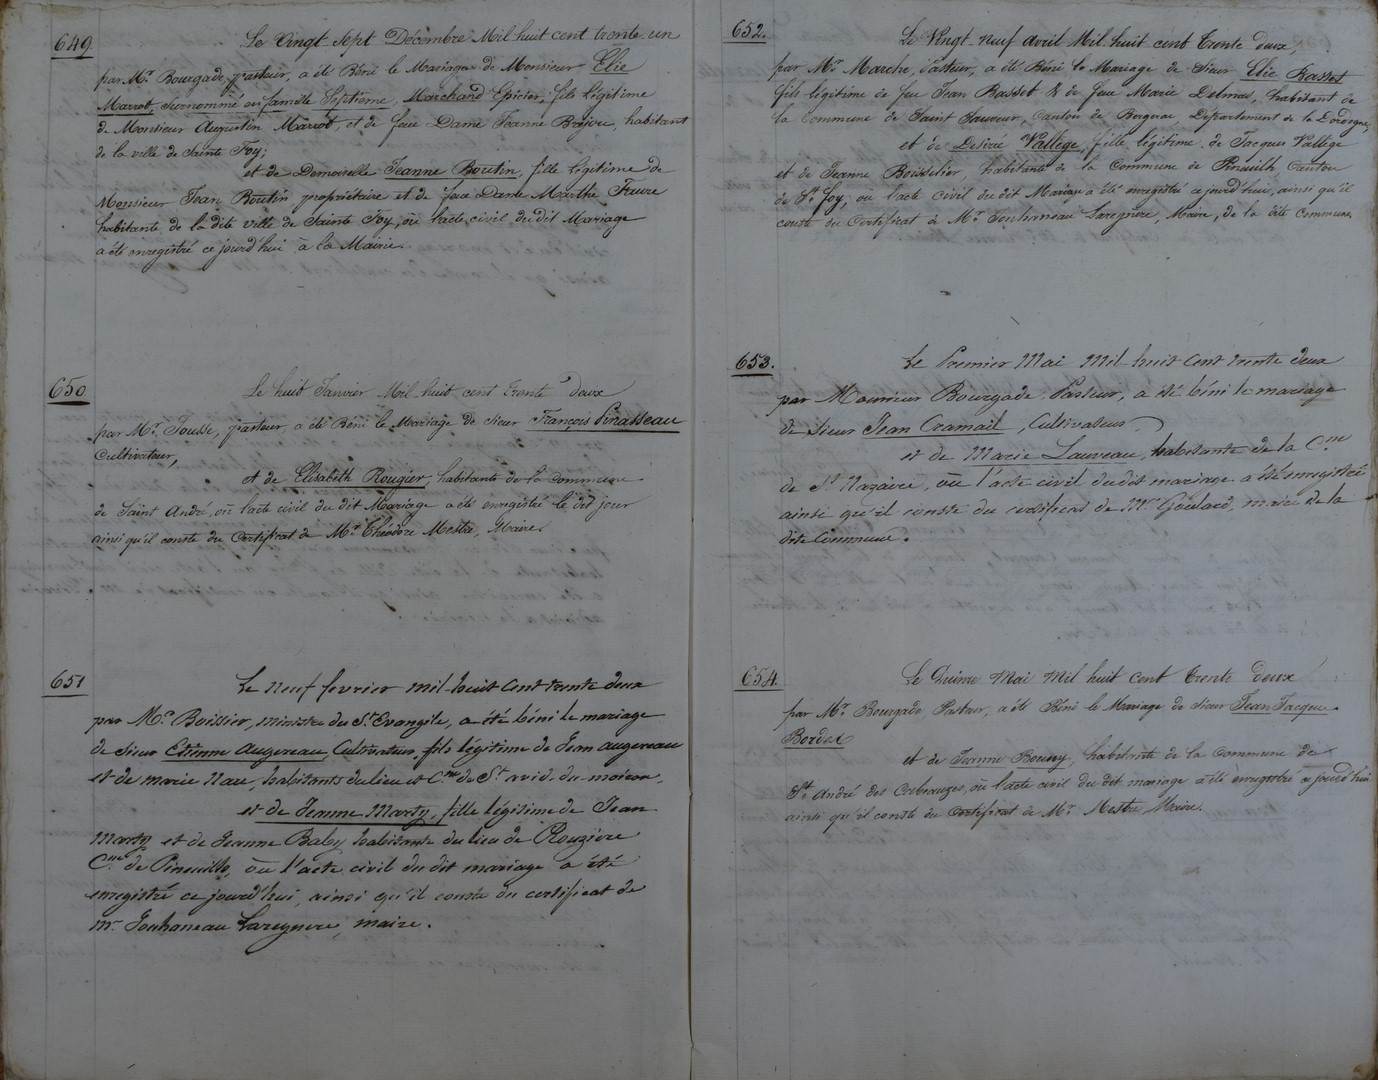 649.
Le Vingt Sept Décembre Mil huit cent trente un
par Mr. Bourgade, pasteur, a été Béni le Mariage de Monsieur Elie
Marrot, surnommé en famille Septième, Marchand Epicier, fils légitime
de Monsieur Augustin Marrot, et de feue Dame Jeanne Bajou, habitant
de la ville de Sainte Foy;
et de Demoiselle Jeanne Boutin, fille Légitime de
Monsieur Jean Boutin propriétaire et de feue Dame Marthe
habitante de la dite ville de Sainte Foy, où l'acte civil du dit Mariage
a été enregistré ce jourd'hui à la Mairie.
650
Le huit Janvier Mil huit cent Trente deux
par Mr. Jousse, pasteur, a été Béni le Mariage de Sieur François Pinasseau
Cultivateur,
et de Elisabeth Rougier, habitante de la Commune
de Saint André, où l'acte civil du dit Mariage a été enregistré le dit jour
ainsi qu'il conste du Certificat de Mr. Théodore Mestre, Maire.
651
Le neuf fevrier mil huit Cent trente deux
par Mr. Boissier, ministre du St. Evangile, a été béni le mariage
de Sieur Etienne Augereau, Cultivateur, fils légitime de Jean augereau
et de marie Nau, habitants du lieu et Cne de St. avid du moiron,
et de Jeanne Marty, fille légitime de Jean
Marty et de Jeanne Baby, habitante du lieu de Rouzière
Cne de Pineuilh, où l'acte civil du dit mariage a été
enregistré ce jourd'hui, ainsi qu'il conste du certificat de
mr. Jouhaneau Laregnere, maire.
652.
Le Vingt neuf Avril Mil huit cent Trente deux,
par Mr. Marche, Pasteur, a été Béni le Mariage de Sieur Elie Rasset
fils légitime de feu Jean Rasset & de feue Marie Delmas, habitant de
la Commune de Saint Sauveur, Canton de Bergerac, Département de la Dordogne,
et de Desirée Vallège, fille légitime de Jacques Vallège
et de Jeanne Boisselier, habitante de la Commune de Pineuilh, Canton
de Ste. Foy, où l'acte civil du dit Mariage a été enregistré ce jourd'hui, ainsi qu'il
conste du Certificat de Mr. Jouhaneau Laregnere, Maire, de la dite Commune.
653.
Le Premier Mai Mil huit Cent trente deux
par Monsieur Bourgade Pasteur, a été béni le mariage
de Sieur Jean Cramail, Cultivateur,
et de Marie Lauveau, habitante de la Cne
de St. Nazaire, où l'acte civil du dit mariage a été enregistré
ainsi qu'il conste du certificat de Mr. Goulard, maire de la
dite Commune.
654
Le Quinze Mai Mil huit Cent Trente deux
par Mr. Bourgade, Pasteur, a été Béni le Mariage de Sieur Jean Jacques
Bordes
et de Jeanne Bouny, habitante de la Commune de
St. André des Cabeauzes, où l'acte civil du dit mariage a été enregistré ce jourd'hui
ainsi qu'il conste du Certificat de Mr. Mestre, Maire.